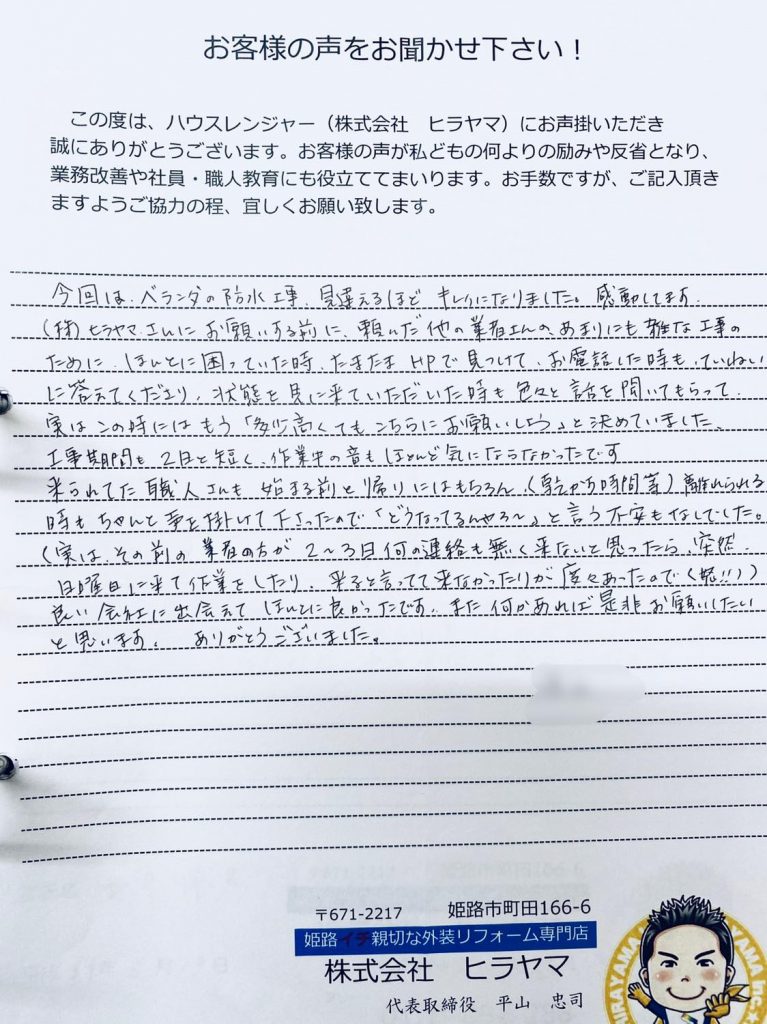 お客様の声をお聞かせ下さい！
この度は、ハウスレンジャー（株式会社　ヒラヤマ）にお声掛いただき
誠にありがとうございます。お客様の声が私どもの何よりの励みや反省となり、
業務改善や社員・職人教育にも役立ててまいります。お手数ですが、ご記入頂き
ますようご協力の程、宜しくお願い致します。
今回は、ベランダの防水工事、見違えるほど キレイになりました。感動してます。
(株)ヒラヤマさんに お願いする前に、頼んだ他の業者さんの、あまりにも 雑な工事の
ために、ほんとに困っていた時、たまたま HPで見つけて、お電話した時も、ていねい
に答えてくださり、状態を見に来ていただいた時も色々と話を聞いてもらって、
実は この時には もう「多少高くても こちらに お願いしよう」と決めていました。
工事期間も 2日と短く、作業中の音も ほとんど気にならなかったです
来られてた職人さんも 始まる前と帰りにはもちろん、(乾かす時間等) 離れられる
時も ちゃんと声を掛けて下さったので「どうなってるんやろ～」と言う不安もなしでした。
(実は、その前の 業者の方が 2～3日何の連絡も無く来ないと思ったら、突然、
日曜日に来て作業をしたり、来ると言ってて来なかったりが 度々あったので(怒!!))
良い会社に出会えて ほんとに良かったです。また何かあれば是非お願いしたい
と思います。 ありがとうございました。
〒671-2217　姫路市町田166-6
姫路イチ親切な外装リフォーム専門店
株式会社　ヒラヤマ
代表取締役　平山　忠司
HIRAYAMA Inc.